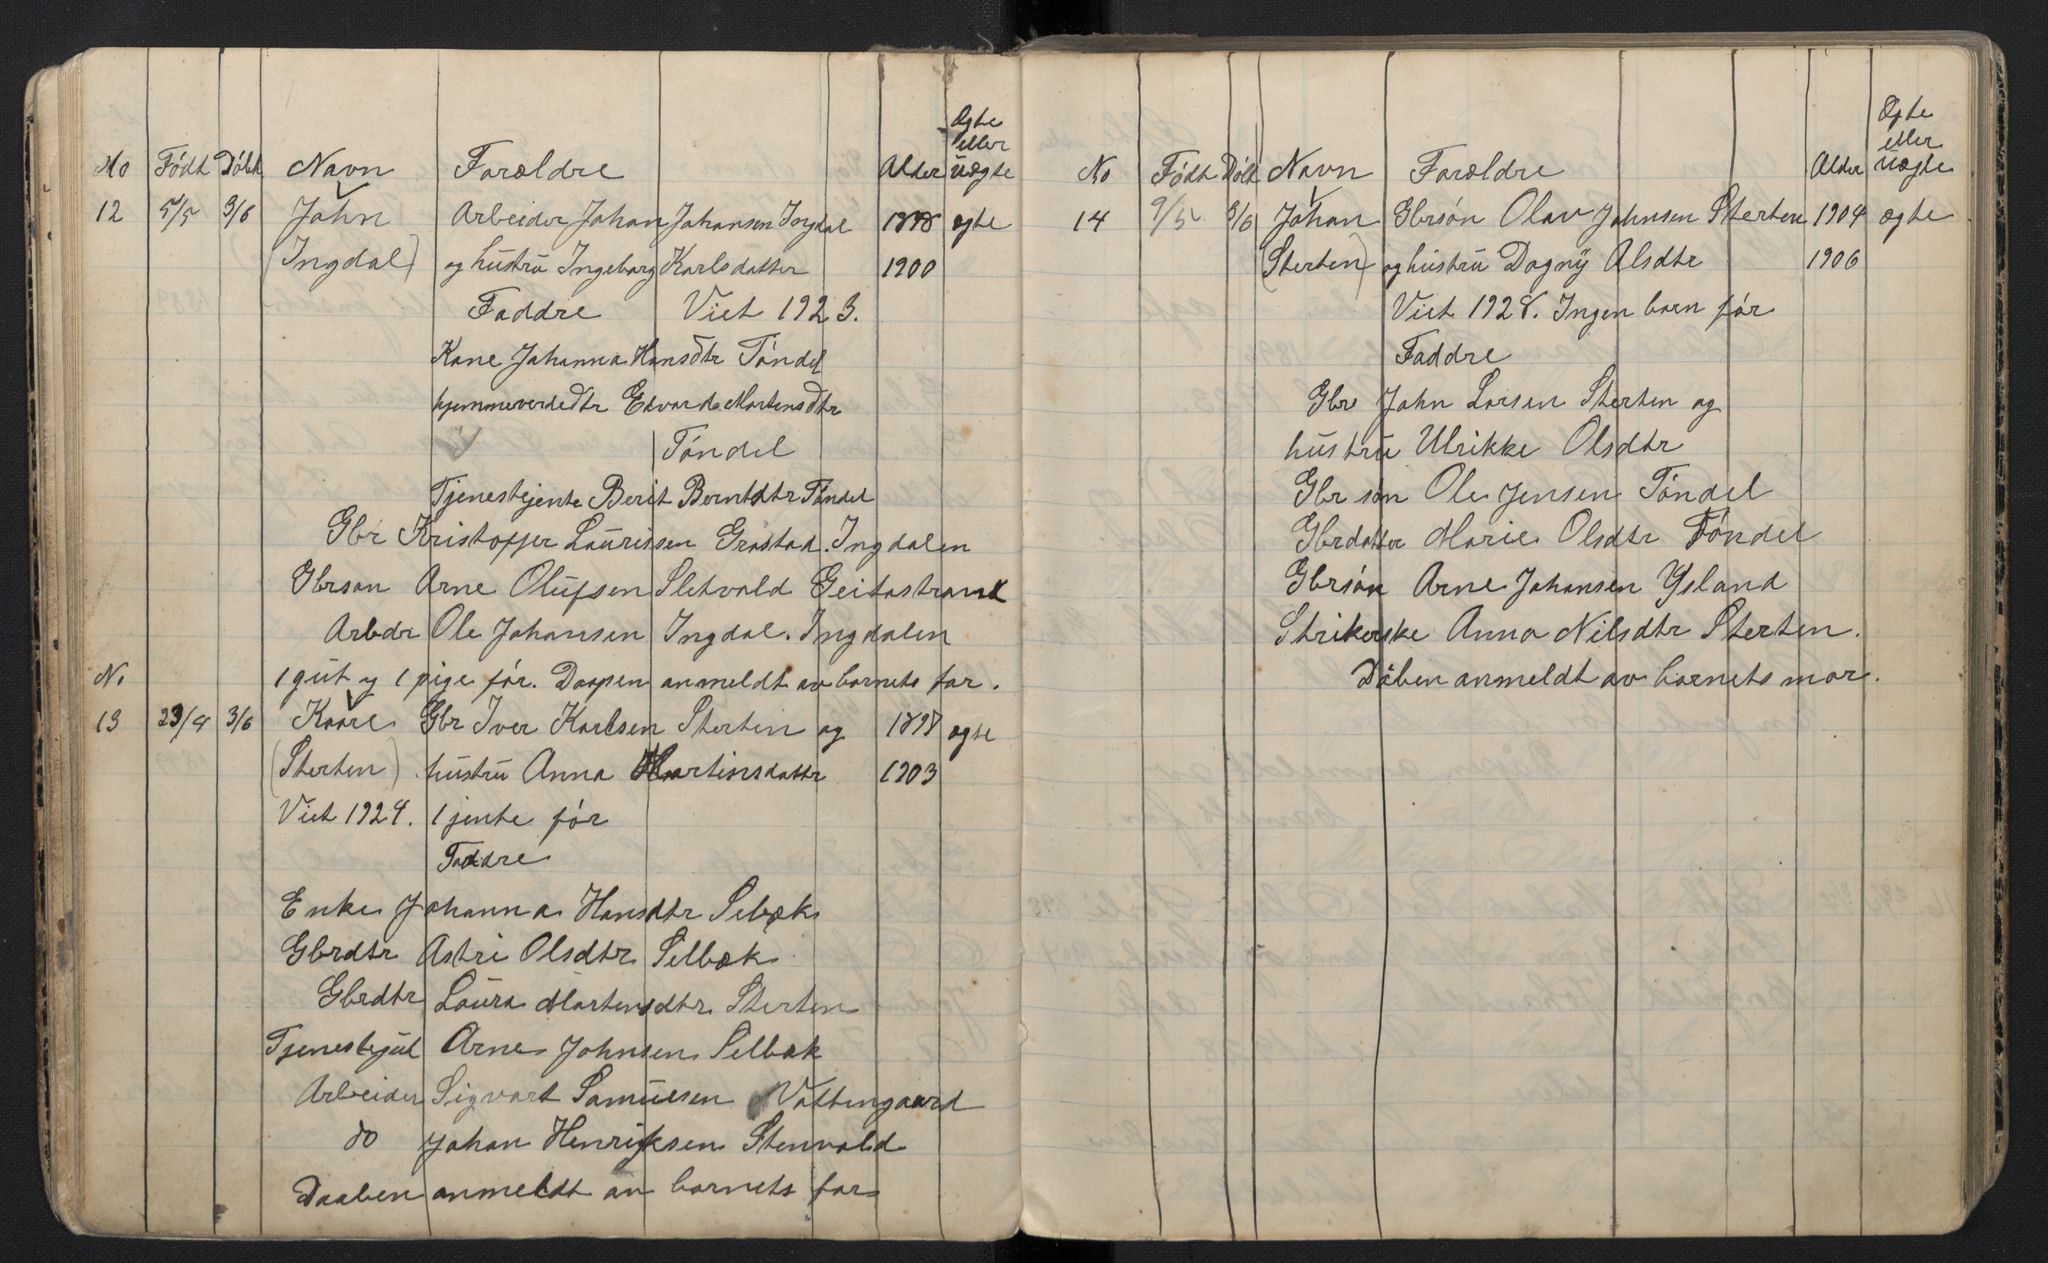 Ægte
eller
No Født Døbt Navn Forældre Alder Uægte
12 5/5 3/6 John Arbeider Johan Johansen Ingdal 1898 ægte
(Ingdal) og hustru Ingeborg Karlsdatter 1900
Faddre Viet 1923.
Kone Johanna Hansdtr Tøndel
hjemmeverdedtr Edvarda Martensdtr
Tøndel
Tjenestejente Berit Berntdtr Tøndel
Gbr Kristoffer Laurissen Grøstad. Ingdalen
Gbrsøn Arne Olufsen Sletvold Geitastrand
Arbdr Ole Johansen Ingdal. Ingdalen
No 1 gut og 1 pige før. Daapen anmeldt av barnets far.
13 23/4 3/6 Kaare Gbr Iver Karlsen Sterten og 1898 ægte
(Sterten) hustru Anna Martinsdattr 1903
Viet 1924. 1 jente før
Faddre
Enke Johanna Hansdtr Selbæk
Gbrdtr Astri Olsdtr Selbæk
Gbrdtr Laura Martensdtr Sterten
Tjenestegut Arne Johnsen Selbæk
Arbeider Sigvart Samuelsen Vattengaard
do Johan Henriksen Stenvold
Daaben anmeldt av barnets far
Ægte
eller
No Født Døbt Navn Forældre Alder Uægte
14 9/5 3/6 Johan Gbrsøn Olav Johnsen Sterten 1904 ægte
(Sterten) og hustru Dagny Alsdtr 1906
Viet 1928. Ingen barn før
Faddre
Gbr John Larsen Sterten og
hustru Ulrikke Olsdtr
Gbr søn Ole Jensen Tøndel
Gbrdatter Marie Olsdtr Tøndel
Gbrsøn Arne Johansen Ysland
Strikerske Anna Nilsdtr Sterten.
Dåben anmeldt av barnets mor.